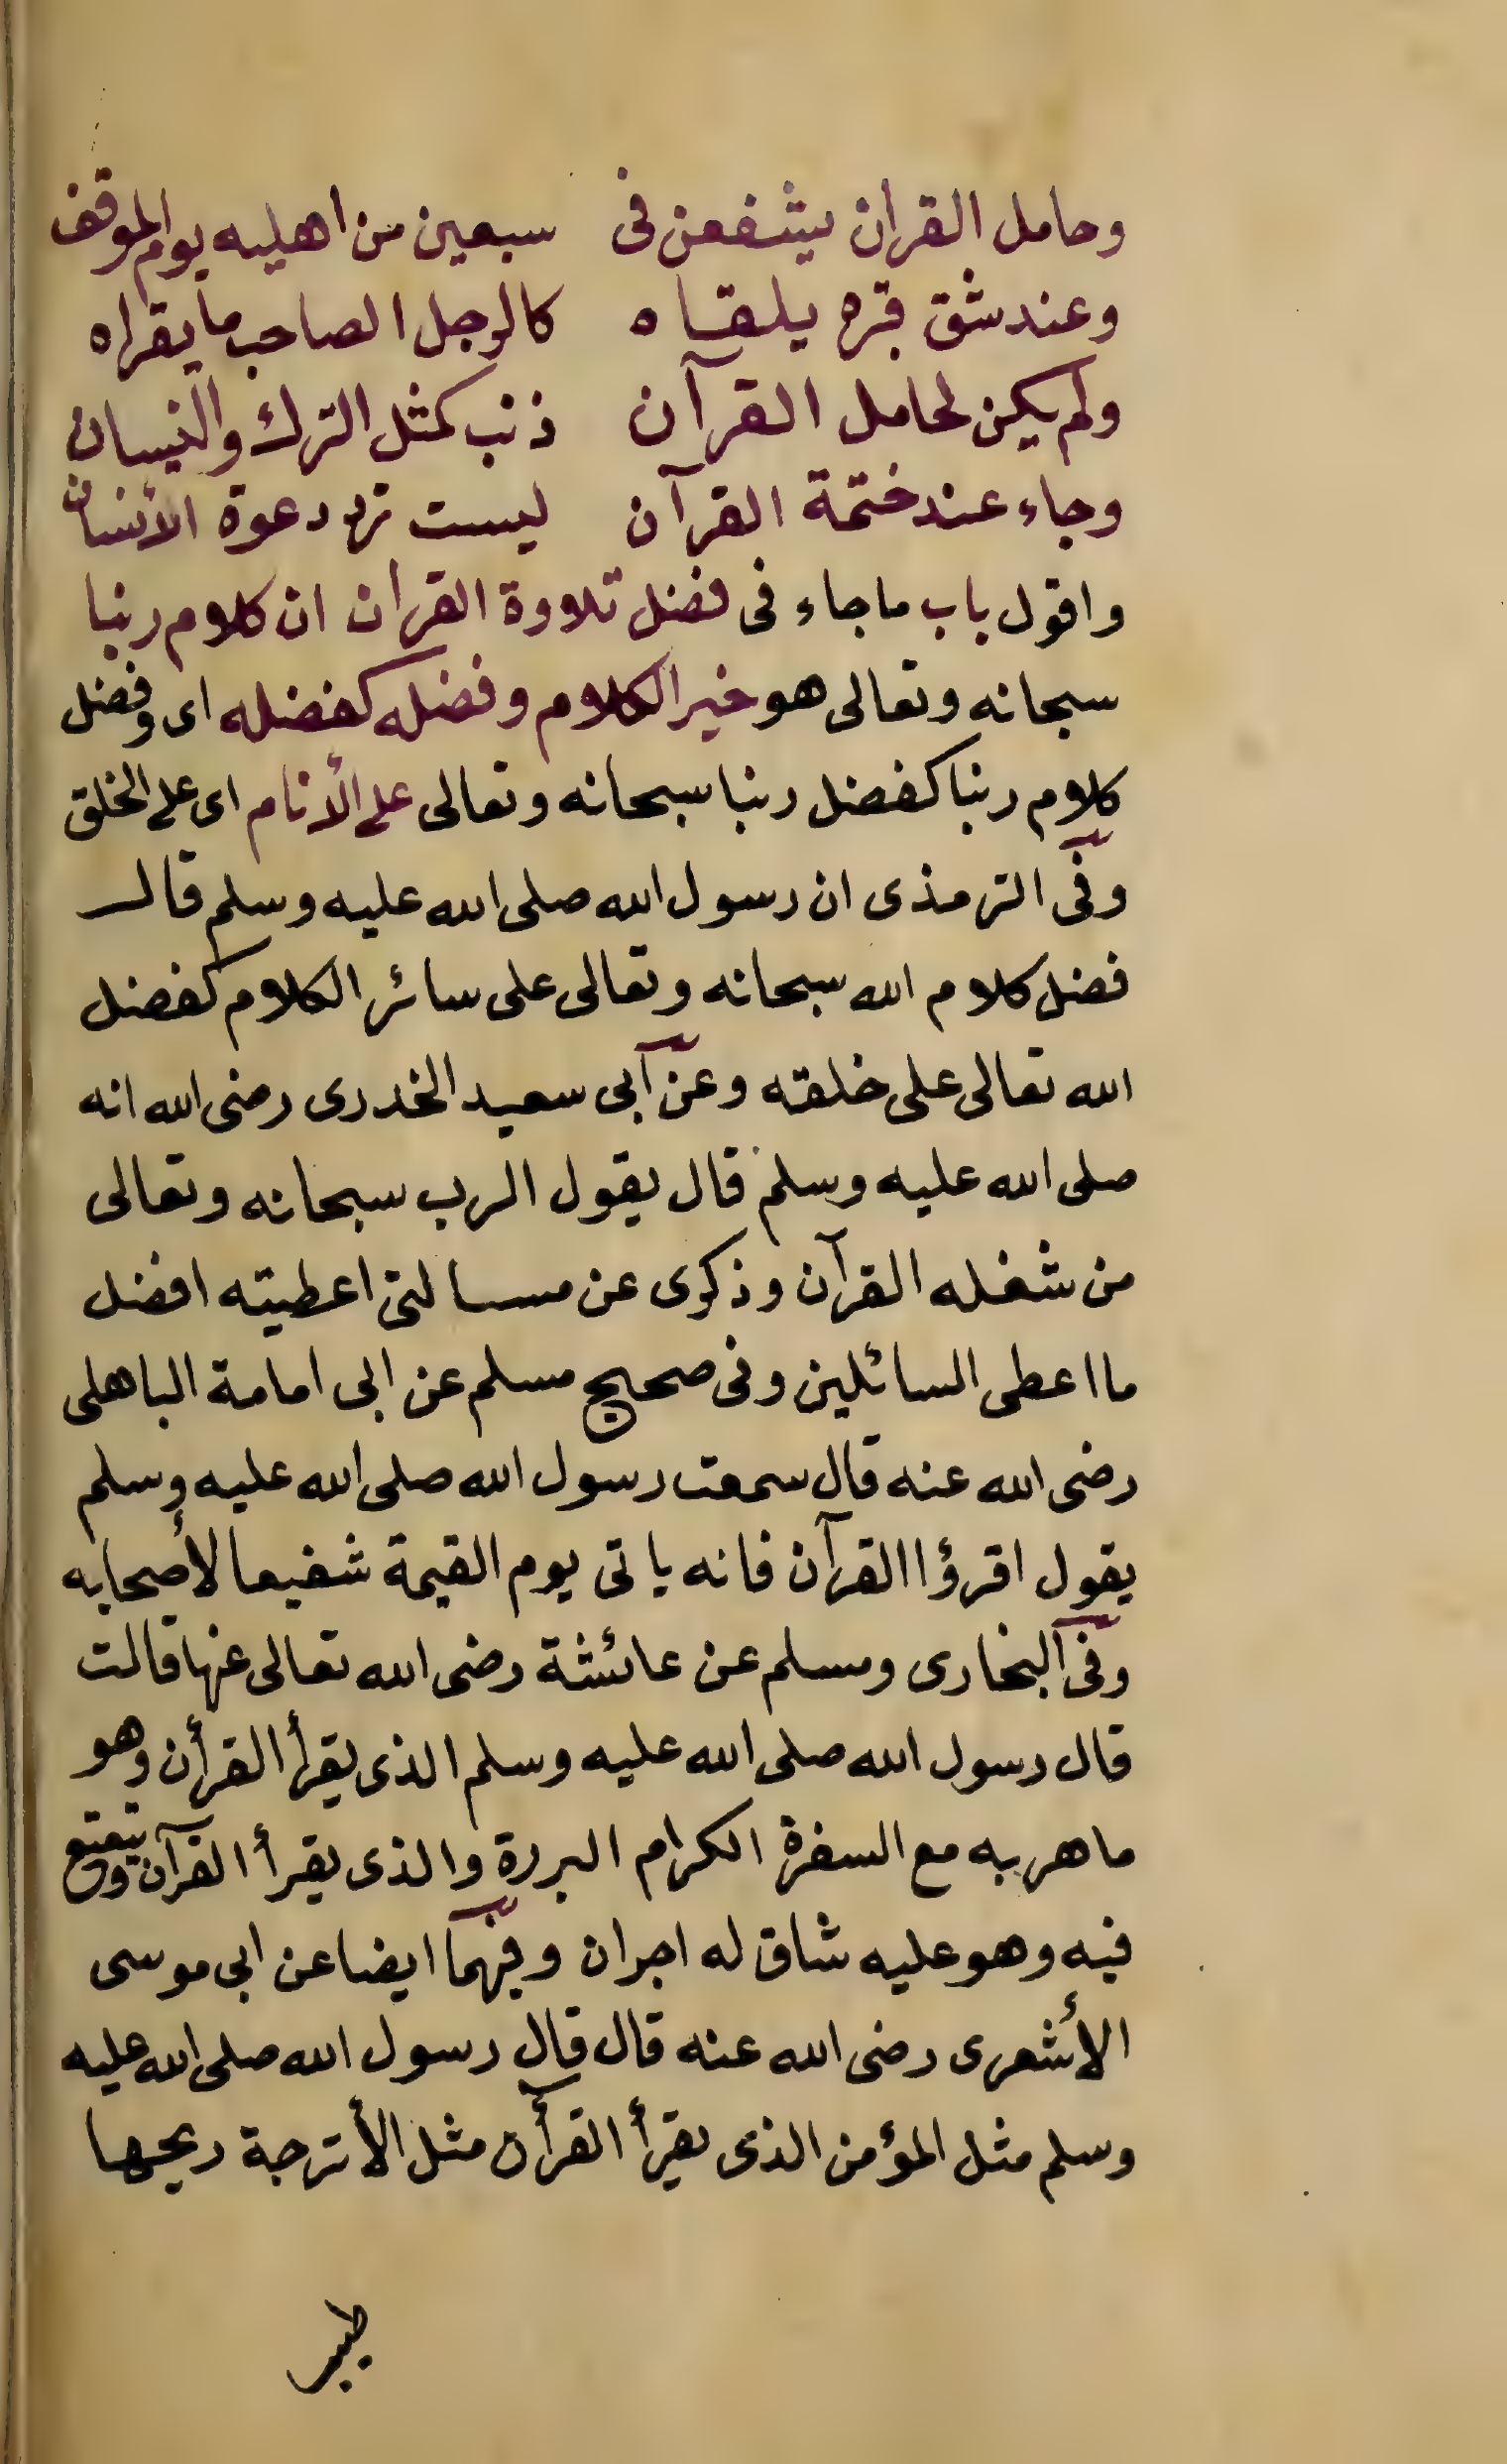 وحامل القران يشفعن فى سبعين من اهليه يوم الموقف
وعند شق قبره يلقاه كالرجل الصاحب ما يقراه
ولم يكن لحامل القرآن ذنب كمثل الترك والنسيان
وجاء عند ختمة القرآن ليست ترد دعوة الأنسان
واقول باب ماجاء فى فضل تلاوة القران ان كلام ربنا
سبحانه وتعالى هو خير الكلام وفضله كفضله اى وفضل
كلام ربنا كفضل ربنا سبحانه وتعالى على الأنام اى على الخلق
وفى الترمذى ان رسول الله صلى الله عليه وسلم قال
فضل كلام الله سبحانه وتعالى على سائر الكلام كفضل
الله تعالى على خلقه وعن ابى سعيد الخدرى رضى الله انه
صلى الله عليه وسلم قال يقول الرب سبحانه وتعالى
من شغله القرآن وذكرى عن مسالتى اعطيته افضل
ما اعطى السائلين وفى صحيح مسلم عن ابى امامة الباهلى
رضى الله عنه قال سمعت رسول الله صلى الله عليه وسلم
يقول اقرؤا القرآن فانه ياتى يوم القيمة شفيعا لأصحابه
وفى البخارى ومسلم عن عائشة رضى الله تعالى عنها قالت
قال رسول الله صلى الله عليه وسلم الذى يقرأ القرأن وهو
ماهر به مع السفرة الكرام البررة والذى يقرأ القرآن ويتعتع
فيه وهو عليه شاق له اجران وفيهما ايضا عن ابى موسى
الأشعرى رضى الله عنه قال قال رسول الله صلى الله عليه
وسلم مثل المؤمن الذى يقرأ القرآن مثل الأترجة ريحها
طيب